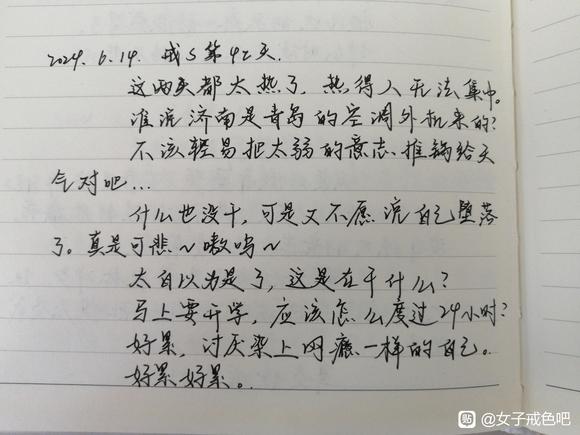 2024.6.14. 戒S第42天.
这两天都太热了,热得人无法集中。
谁说济南是青岛的空调外机来的?
不该轻易把太弱的意志推锅给天
气对吧...
什么也没干,可是又不愿说自己堕落
了。真是可悲~嗷呜~
太自以为是了,这是在干什么?
马上要开学,应该怎么度过24小时?
好累,讨厌染上网瘾一样的自己。
好累好累。
贴 @女子戒色吧